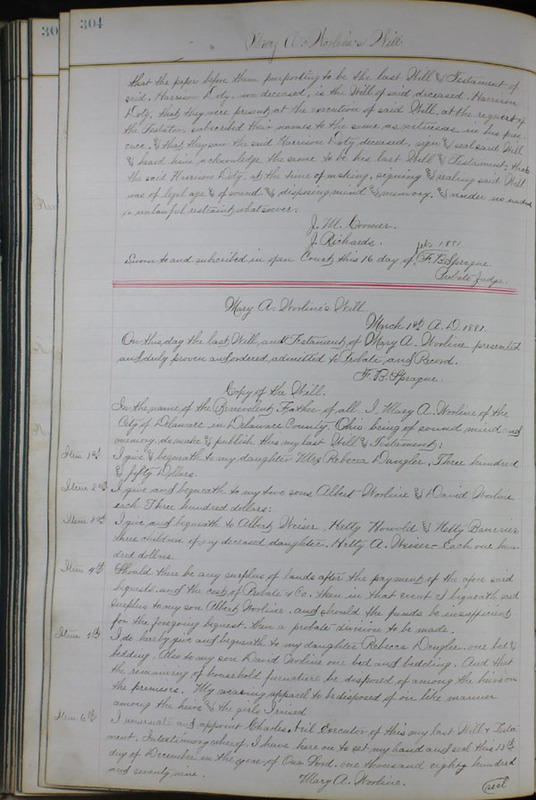 30
304
Mary A. Worline's Will
that the paper before them purporting to be the last Will & Testament of
said, Harrison Doty, now deceased, is the Will of said deceased, Harrison
Doty, that they were present at the execution of said Will, at the request of
the Testator subscribed their names to the same as witnesses in his pre-
ence, & that they saw the said Harrison Doty, deceased, sign & seal said Will
& heard him acknowledge the same to be his last Will & Testament, that
the said Harrison Doty, at the time of making, signing & sealing said Will
was of legal age & of sound & disposing mind & memory, & under no undue
or unlawful restraint whatsoever.
J. M.
J. Richards.
Sworn to and subscribed in open Court, this 16 day of Feb. 1881
F. B. Sprague
Probate Judge.
Mary A. Worline's Will
March 1st A.D. 1881.
On this day the last Will, and Testament, of Mary A. Worline presented
and duly proven and ordered admitted to Probate, and Record.
F. B. Sprague.
Copy of the Will.
In the name of the Benevolent Father of all. I, Mary A. Worline of the
City of Delaware in Delaware County, Ohio being of sound mind and
memory, do make & publish this my last Will & Testament;
Item 1st I give & bequeath to my daughter Rebecca Dangler, Three hundred
& fifty Dollars.
Item 2nd I give and bequeath to my two sons Albert Worline & David Worline
each Three hundred dollars:
Item 3rd I give and bequeath to Albert Weiser, Hetty & Netty
three children of my deceased daughter, Hetty A. Weiser - Each one hun-
dred dollars.
Item 4th Should there be any surplus of funds after the payment of the afore said
bequests, and the cost of Probate & Co. then in that event I bequeath said
surplus to my son Albert Worline, and should the funds be insufficient
for the foregoing bequest, then a probate division to be made.
Item 5th I do hereby give and bequeath to my daughter Rebecca Dangler, one bed &
bedding. Also to my son David Worline one bed and bedding. And that
the remainery of household furniture be disposed of among the heirs on
the premises. My wearing apparel to be disposed of in like manner
among the heirs & the girls I raised
Item 6th I nominate and appoint Charles executor of this my last Will & Testa-
ment. In testimony whereof, I have here on to set my hand and seal this 13th
day of December in the year of Our Lord, one thousand eighty hundred
and seventy nine.
Mary A. Worline. seal